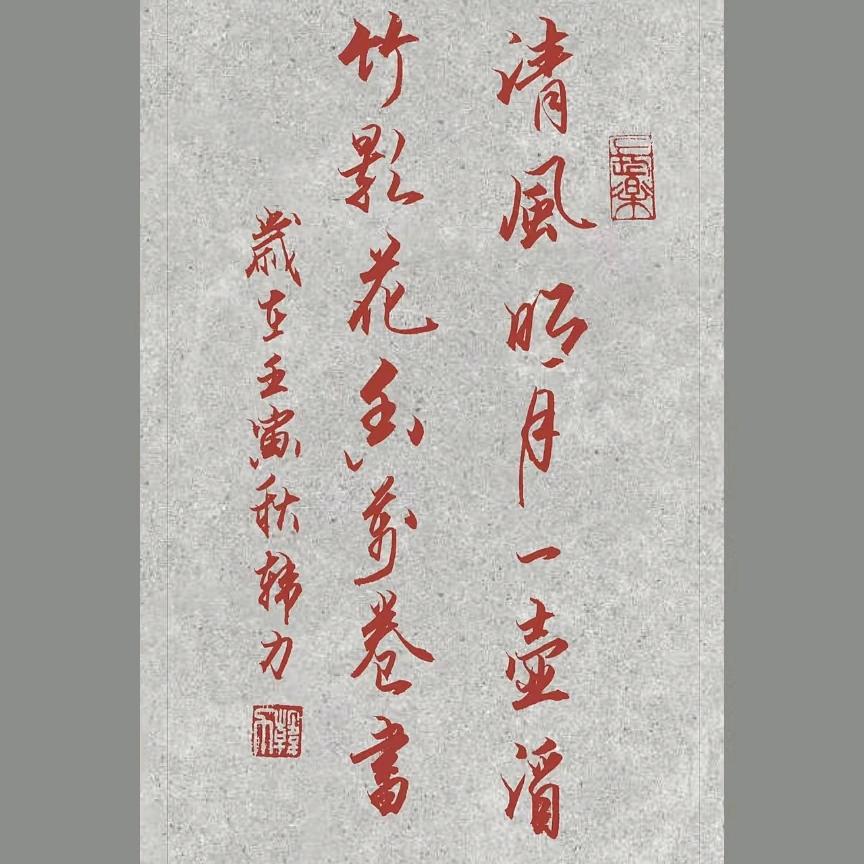 清風明月一壺酒
竹影花香萬卷書
歲在壬寅秋韩力